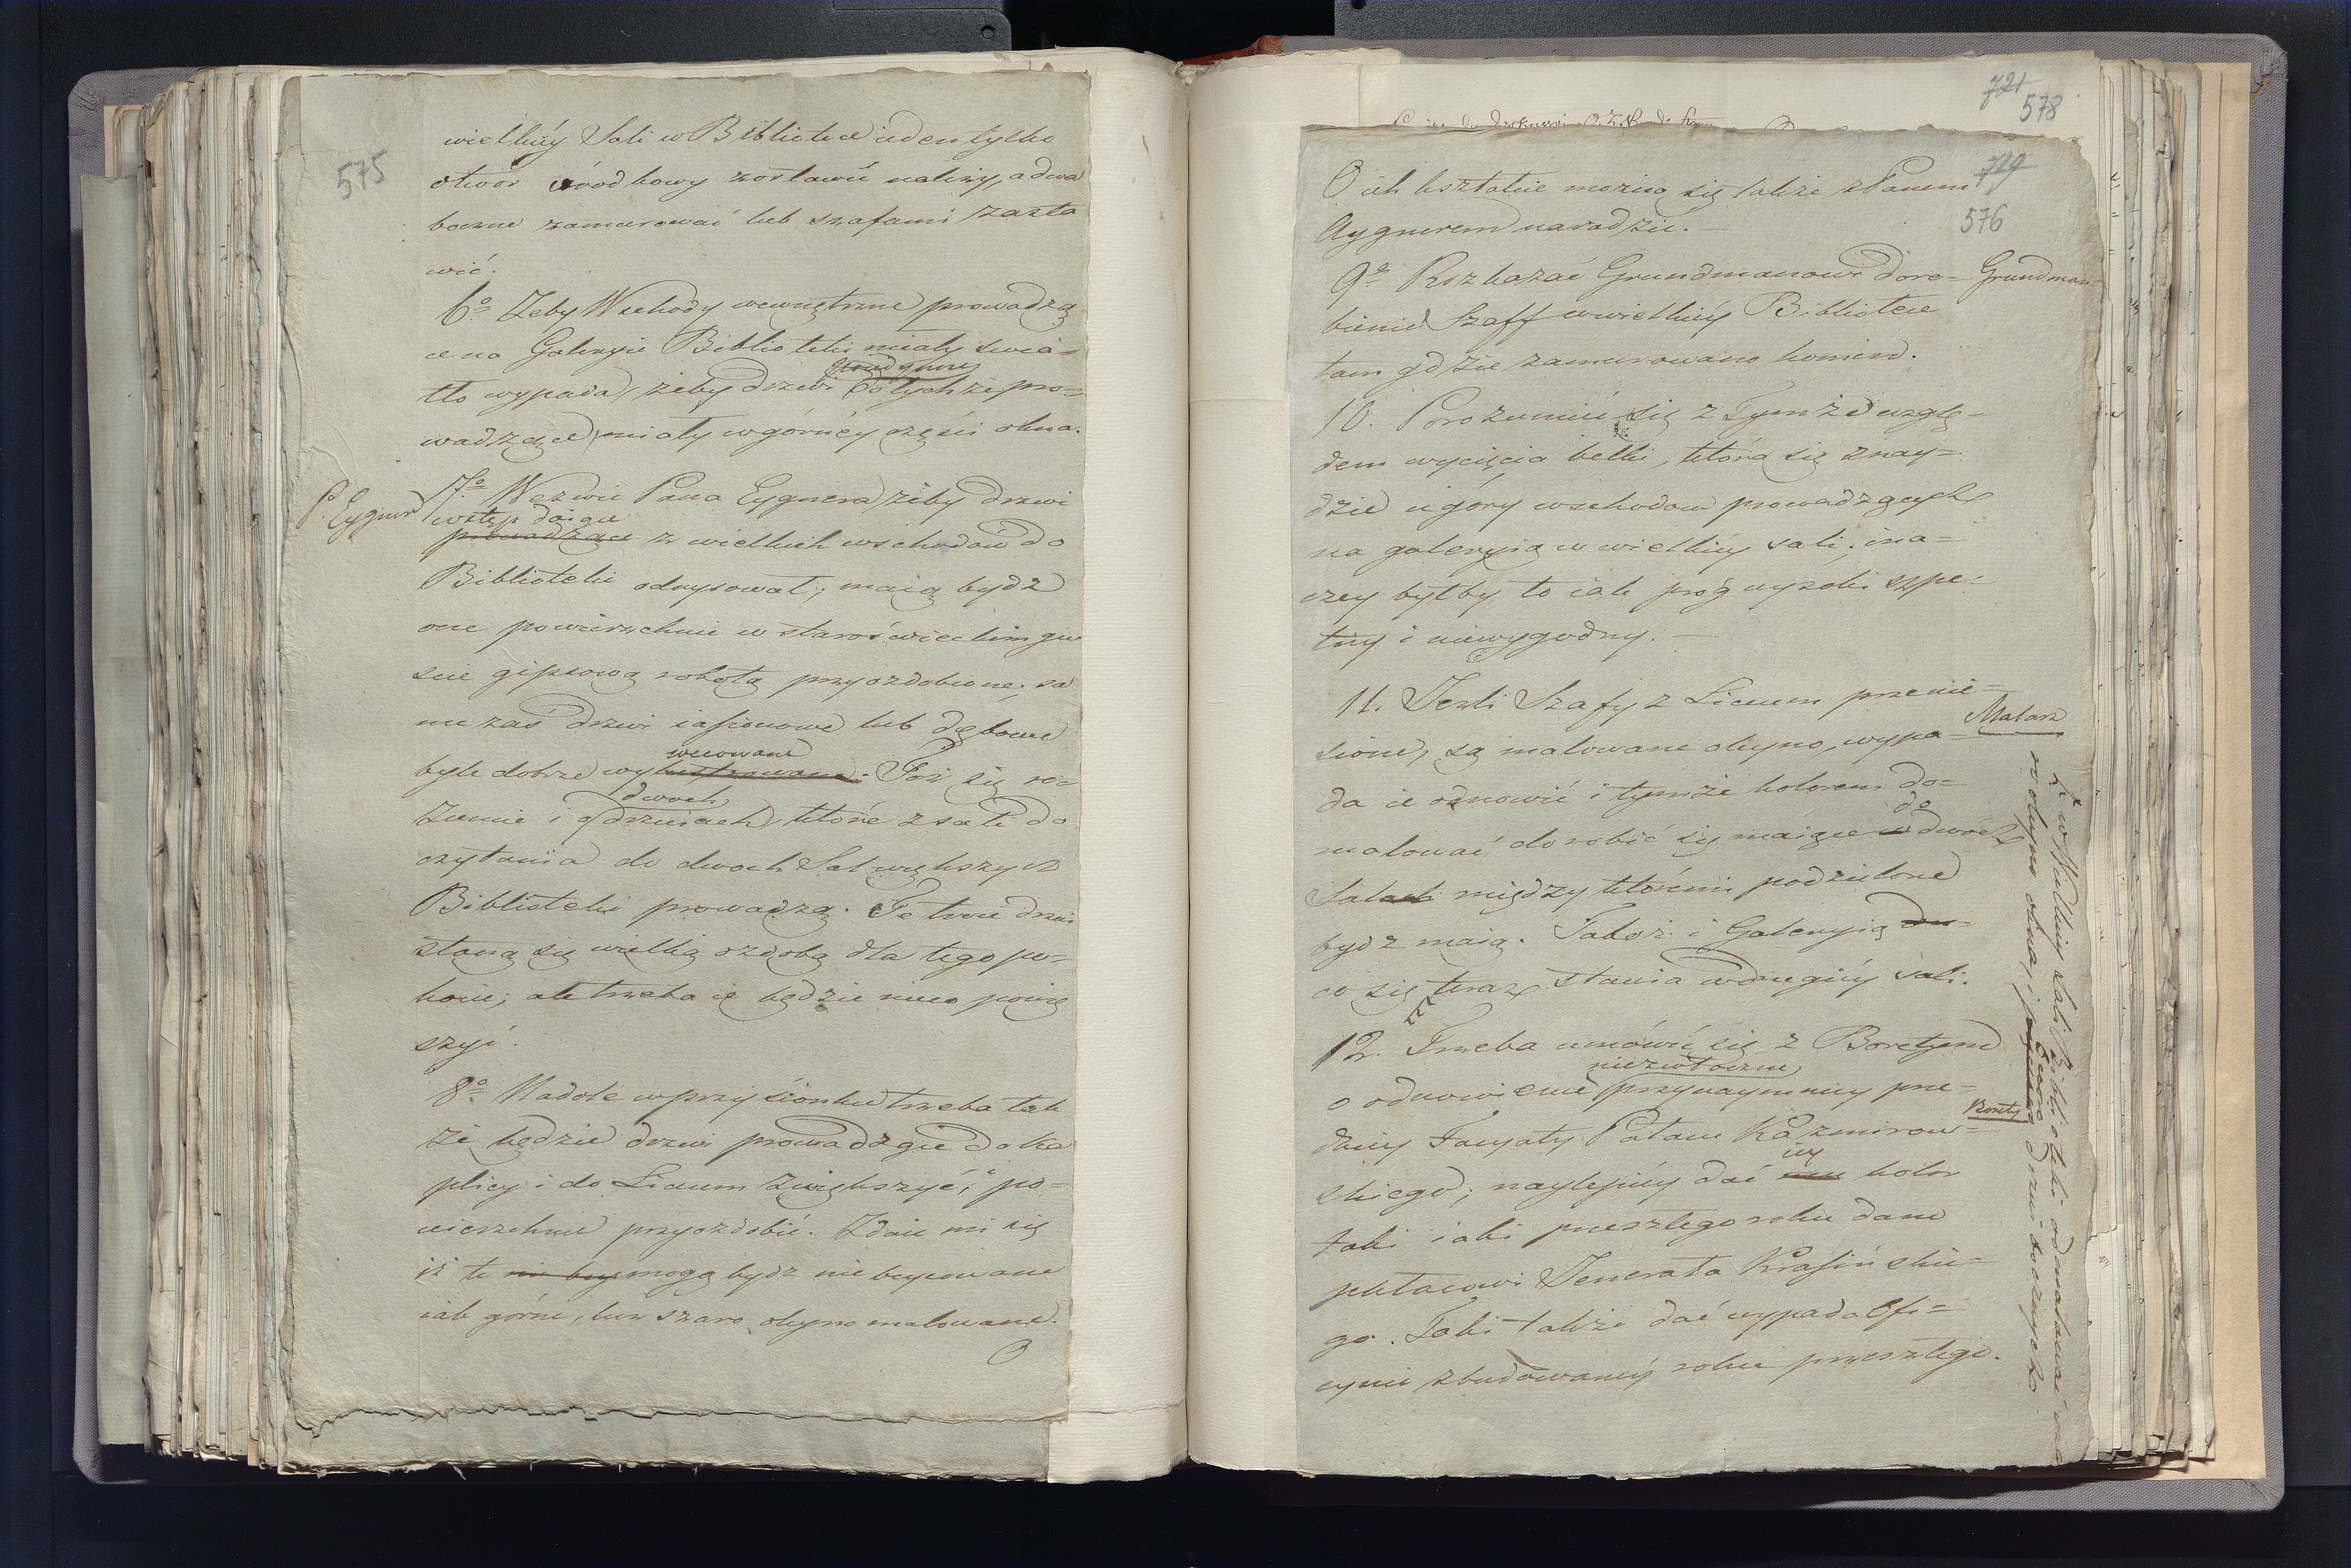 575
wielkiéy Sali w Bibliotece ieden tylko
otwor środkowy zostawić należy, a dwa
boczne zamurować lub szafami zasta
wić.
6o Żeby Wschody wewnętrzne prowadzą
ce na Galeryie Biblioteki miały świa=
tło wypada, żeby drzwi do tychże pro=
wadzące, miały w górnéy części okna.
P. Eygner
7o Wezwie Pana Eygnera żeby drzwi
wstęp daiące
prowadzące z wielkich wschodów do
Biblioteki odrysował; maią bydz
one powierzchnie w staroświeckim gu
scie gipsową robotą przyozdobione; sa
me zaś drzwi iasionowe lub dębowe
wecowane
byle dobrze wy. Toż się ro=
dwoch
zumie i o drzwiach, które z sali do
czytania do dwoch Sal większych
Biblioteki prowadzą. Te troie drzwi
staną się wielką ozdobą dla tego po=
koiu; ale trzeba ie będzie nieco powię
szyć.
8o Nadole w przysionku trzeba tak
że będzie drzwi prowadzące do Ka
plicy i do Liceum zwiększyć, i po=
wierzchnie przyozdobić. Zdaie mi się
iż te nie być mogą bydz nie beycowane
iak górne, lecz szaro olejno malowane.
O
721
578
719
576
O ich kształcie można się także z Panem
Aygnerem naradzić.
9o Rozkazać Grundmanowi doro=
Grundman
bienie Szaff w wielkiéy Bibliotece
tam gdzie zamurowano komin.
10. Porozumieć się z Tymże wzglę=
dem wycięcia belki, która się znay=
dzie u góry wschodow prowadzących
na galeryią w wielkiéy sali; ina=
czey byłby to iak próg wysoki szpe=
tny i niewygodny.
11. Jeśli Szafy z Liceum przenie=
Malarz
sione, są malowane oleyno, wypa=
da ie odnowić i tymże kolorem do=
do
malować dorobić się maiące dwóch
Salach między któremi podzielone
bydz maią. Także i Galeryią
co się teraz stawia w drugiéy sali.
12. Trzeba umówić się z Boretym
niezwłoczne
o odnowienie przynaymniey prze=
Borety
dniéy Facyaty Pałacu Kazmirow=
skiego; naylepiéy dać kolor
taki iaki przeszłego roku dano
pałacowi Jenerała Krasińskie=
go. Taki także dać wypada Ofi=
cynie zbudowanéy roku przeszłego.
w Wielkiey Sali Biblioteki odmalować
oleyno okna, i drzwi bocznych